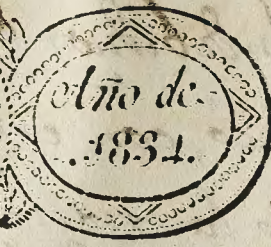 Año de
.1834.